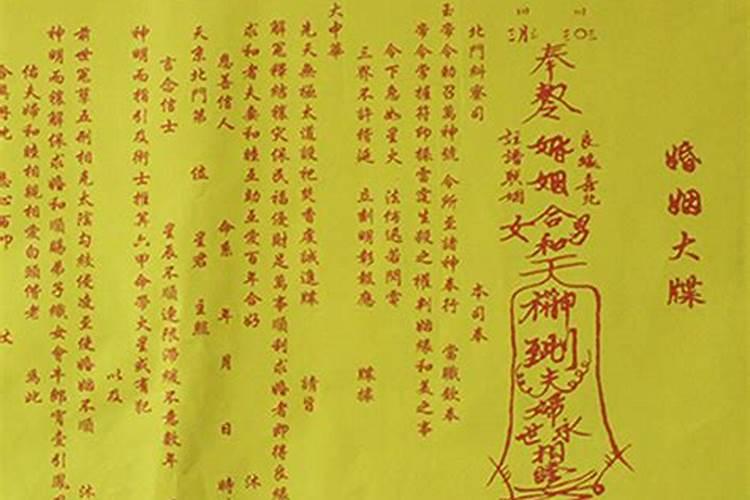 婚姻大牒
奉勅婚姻合和
良緣喜允
註譜聯姻
男女
天
神到
夫婦永世相睦
北門糾察司 本司奉
玉帝令勅召萬神號 令所至諸神奉行 當職欽奉
帝令掌權符印樣雷霆生殺之權判姻緣和美之事
今下急如星火 法何遲若問雷
三界不許稽延 立刻明彰報應 牒據
大中華
先天無極太道設祀焚香虔誠進牒 請旨
解冤釋結禳灾保民福優財足萬事順利求婚者即得良緣
求和者夫妻和睦互助互愛百年合好 沐
恩善信人 命系 年 月 日 時
天京北門第 位 星君 主照
言念信士 星辰不順運限滯緩不意數年
神明而指引及術士推算六甲命帶火星或有犯 以及
前世冤孽五刑相尅太陰勾絞侵凌至使婚姻不順 沐
神明而禳解保求婚和順賜弟子織女會牛郎宵臺引鳳
佑夫婦和睦相親相愛白頭偕老 為此